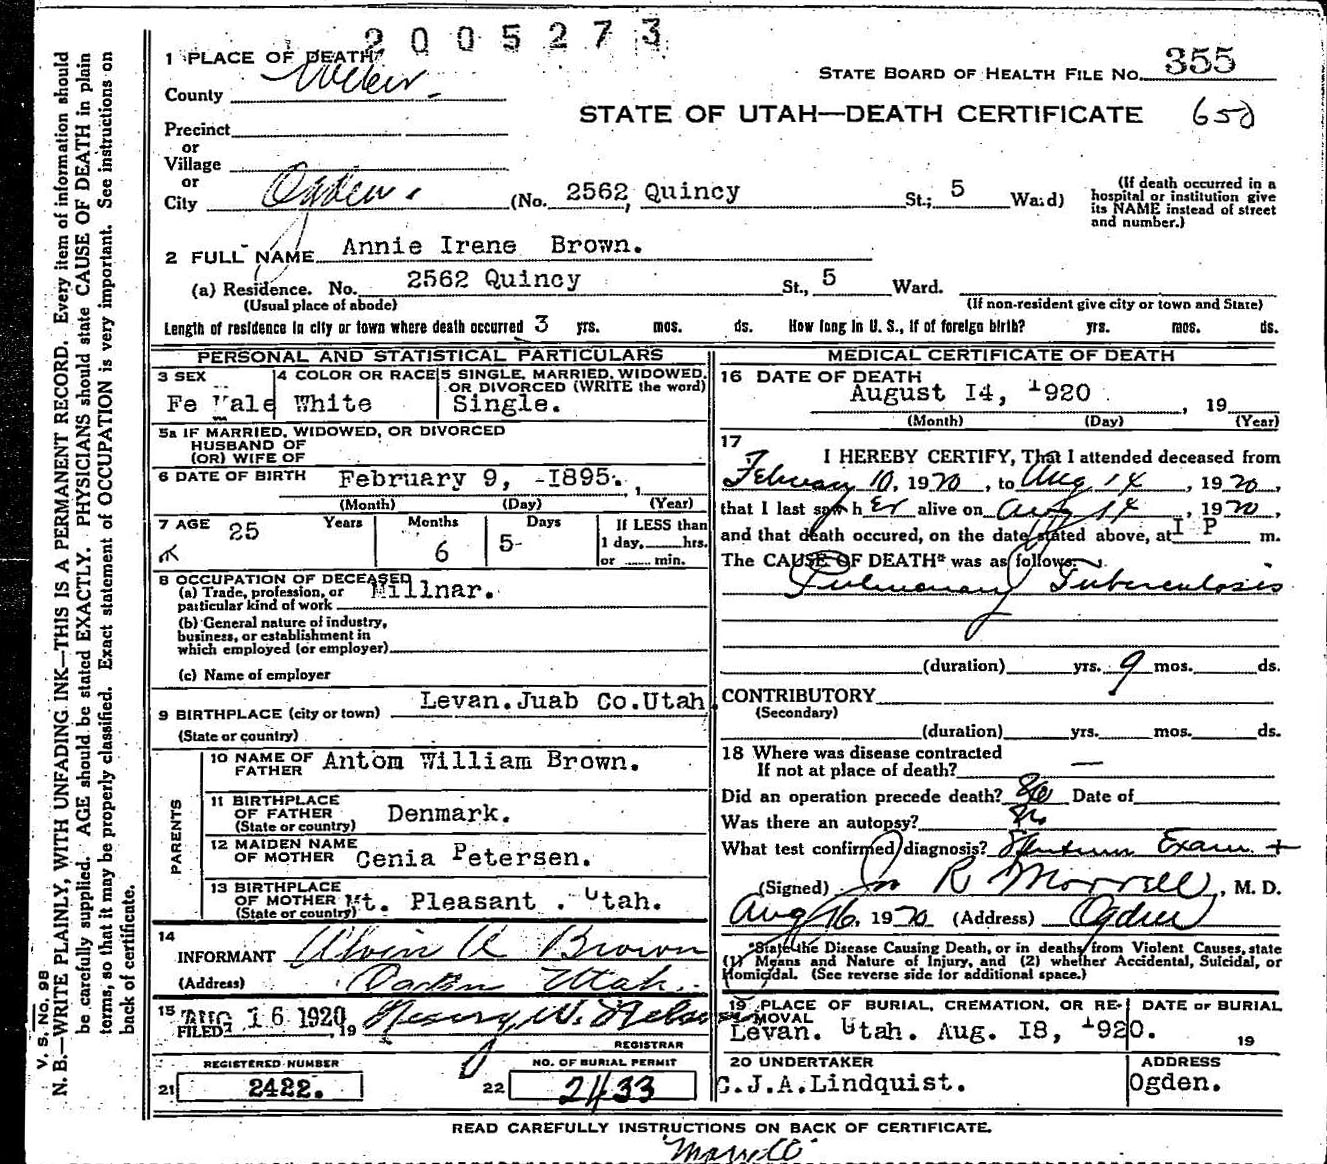 2005273
1 PLACE OF DEATH
County Weber.
STATE BOARD OF HEALTH FILE No. 355
STATE OF UTAH—DEATH CERTIFICATE 650
Precinct
or
Village
or
City Ogden. (No. 2562, Quincy St.; 5 Ward)
(If death occurred in a hospital or institution give its NAME instead of street and number.)
2 FULL NAME Annie Irene Brown.
(a) Residence. No. 2562 Quincy St., 5 Ward.
(Usual place of abode) (If non-resident give city or town and State)
Length of residence in city or town where death occurred 3 yrs. mos. ds. How long in U. S., if of foreign birth? yrs. mos. ds.
PERSONAL AND STATISTICAL PARTICULARS
3 SEX Fe Male
4 COLOR OR RACE White
5 SINGLE, MARRIED, WIDOWED, OR DIVORCED (WRITE the word) Single.
5a IF MARRIED, WIDOWED, OR DIVORCED
HUSBAND OF
(OR) WIFE OF
6 DATE OF BIRTH February 9, -1895.
(Month) (Day) (Year)
7 AGE 25 Years 6 Months 5 Days
If LESS than 1 day, hrs.
or min.
8 OCCUPATION OF DECEASED
(a) Trade, profession, or particular kind of work Millnar.
(b) General nature of industry, business, or establishment in which employed (or employer)
(c) Name of employer
9 BIRTHPLACE (city or town) Levan.Juab Co.Utah
(State or country)
PARENTS
10 NAME OF FATHER Antom William Brown.
11 BIRTHPLACE OF FATHER (State or country) Denmark.
12 MAIDEN NAME OF MOTHER Cenia Petersen.
13 BIRTHPLACE OF MOTHER (State or country) Mt. Pleasant . Utah.
14 INFORMANT Alvin Brown
(Address) Utah.
15 FILED AUG 16 1920, 19 Henry W. Nelson
REGISTRAR
REGISTERED NUMBER
21 2422.
NO. OF BURIAL PERMIT
22 2433
MEDICAL CERTIFICATE OF DEATH
16 DATE OF DEATH
August I4, 1920 , 19
(Month) (Day) (Year)
17 I HEREBY CERTIFY, That I attended deceased from
February 10, 1920, to Aug 14, 1920,
that I last saw her alive on Aug 14, 1920,
and that death occured, on the date stated above, at I P m.
The CAUSE OF DEATH* was as follows:
Pulmonary Tuberculosis
(duration) yrs. 9 mos. ds.
CONTRIBUTORY
(Secondary)
(duration) yrs. mos. ds.
18 Where was disease contracted
If not at place of death? —
Did an operation precede death? No Date of
Was there an autopsy? No
What test confirmed diagnosis? Sputum Exam. +
(Signed) R Morrell, M. D.
Aug 16, 1920 (Address) Ogden
*State the Disease Causing Death, or in deaths from Violent Causes, state
(1) Means and Nature of Injury, and (2) whether Accidental, Suicidal, or
Homicidal. (See reverse side for additional space.)
19 PLACE OF BURIAL, CREMATION, OR REMOVAL DATE OF BURIAL
Levan. Utah. Aug. I8, 1920. 19
20 UNDERTAKER ADDRESS
C.J.A.Lindquist. Ogden.
READ CAREFULLY INSTRUCTIONS ON BACK OF CERTIFICATE.
V. S. No. 98
N. B.—WRITE PLAINLY, WITH UNFADING INK—THIS IS A PERMANENT RECORD. Every item of information should
be carefully supplied. AGE should be stated EXACTLY. PHYSICIANS should state CAUSE OF DEATH in plain
terms, so that it may be properly classified. Exact statement of OCCUPATION is very important. See instructions on
back of certificate.